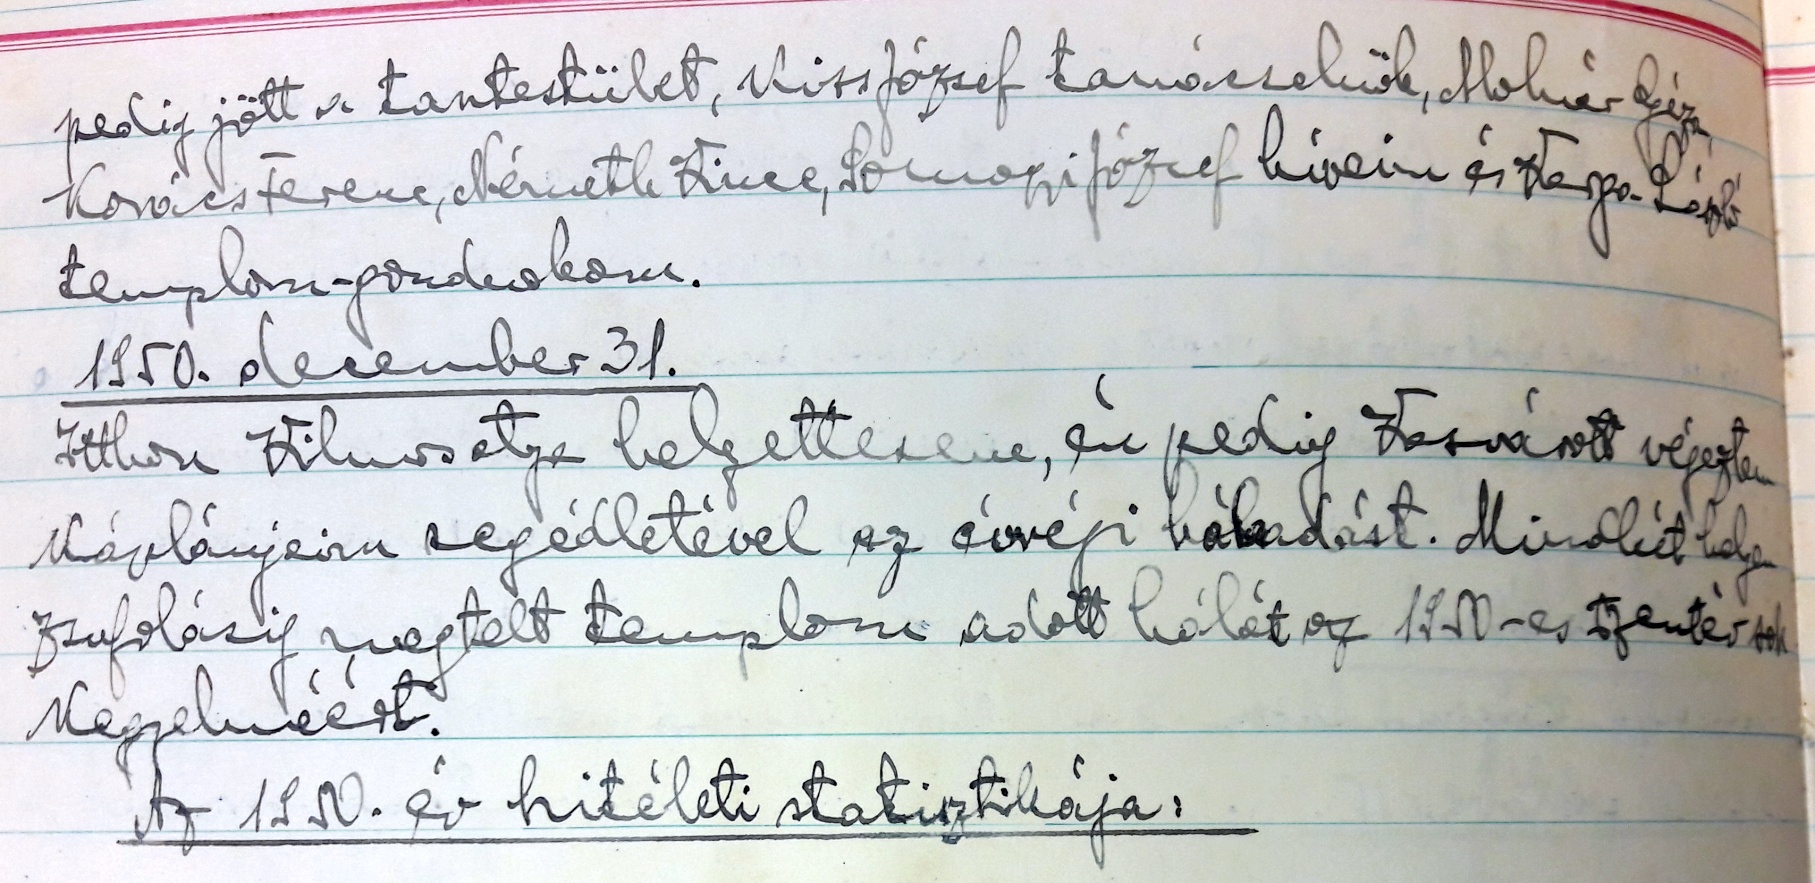 pedig jött a tantestület, Kiss József tanácselnök, Molnár Géza,
Kovács Ferenc, Németh Vince, Somogyi József híveim és Varga László
templom-gondnokom.
1950. december 31.
Itthon Vilmos atya helyettesem, én pedig Vasvárott végeztem
káplánjaim segédletével az évvégi hálaadást. Mindkét helyen
zsufolásig megtelt templom adott hálát az 1950-es szentév sok
kegyelméért.
Az 1950. év hitéleti statisztikája: